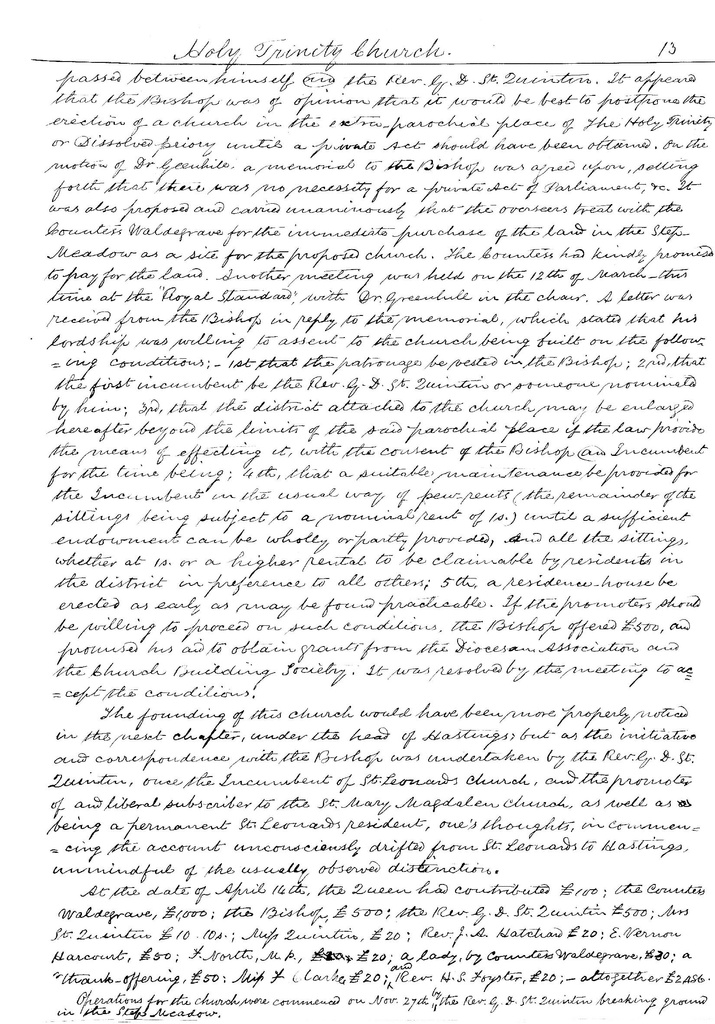 Holy Trinity Church. 13
passed between himself and the Rev. G. D. St. Quintin. It appeared
that the Bishop was of opinion that it would be best to postpone the
erection of a church in the extra-parochial place of The Holy Trinity
or Dissolved priory until a private Act should have been obtained. On the
motion of Dr Geenhile. a memorial to the Bishop was agreed upon, setting
forth that there was no necessity for a private Act of Parliament, &c. It
was also proposed and carried unanimously that the overseers treat with the
Countess Waldegrave for the immediate purchase of the land in the Step-
Meadow as a site for the proposed church. The Countess had kindly promised
to pay for the land. Another meeting was held on the 12th of March—this
time at the "Royal Standard", with Dr. Greenhile in the chair. A letter was
received from the Bishop in reply to the memorial, which stated that his
lordship was willing to assent to the church being built on the follow-
=ing conditions; – 1st that the patronage be vested in the Bishop; 2nd, that
the first incumbent be the Rev. G. D. St. Quintin or someone nominated
by him; 3rd, that the district attached to the church may be enlarged
hereafter beyond the limits of the said parochial place if the law provide
the means of effecting it, with the consent of the Bishop and Incumbent
for the time being; 4th, that a suitable maintenance be provided for
the Incumbent in the usual way of pew-rents (the remainder of the
sittings being subject to a nominal rent of 1s.) until a sufficient
endowment can be wholly or partly provided, and all the sittings,
whether at 1s. or a higher rental to be claimable by residents in
the district in preference to all others; 5th, a residence-house be
erected as early as may be found practicable. If the promoters should
be willing to proceed on such conditions, the Bishop offered £500, and
promised his aid to obtain grants from the Diocesan Association and
the Church Building Society. It was resolved by the meeting to ac=
=cept the conditions.
The founding of this church would have been more properly noticed
in the next chapter, under the head of Hastings; but as the initiative
and correspondence with the Bishop was undertaken by the Rev. G. D. St.
Quintin, once the Incumbent of St. Leonards church, and the promoter
of and liberal subscriber to the St. Mary Magdalen church, as well as
being a permanent St Leonards resident, one's thoughts, in commen-
=cing the account unconsciously drifted from St. Leonards to Hastings,
unmindful of the usually observed distinction.
At the date of April 14th, the Queen had contributed £100; the Countess
Waldegrave, £1,000; the Bishop, £500; the Rev. G. D. St. Quintin £500; Mrs
St. Quintin £10. 10s.; Miss Quintin, £20; Rev. J. A. Hatchard £20; E. Vernon
Harcourt, £50; F. North, M.P., £20; a lady, by Countess Waldegrave, £30; a
thank-offering, £50; Miss F Clarke, £20; and Rev. H. S. Foyster, £20; – altogether £2,456.
Operations for the church were commenced on Nov. 27th by the Rev. G. D. St. Quintin breaking ground
in the Steps Meadow.